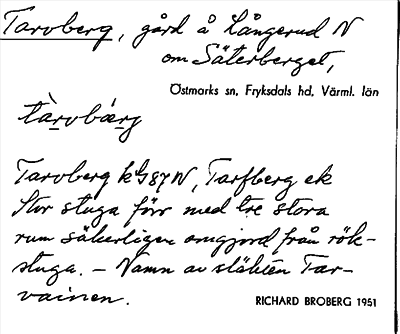 Tarvberg, gård å Långerud N
om Säterberget,
Östmarks sn, Fryksdals hd, Värml. län
tàrvbærj
Tarvberg k G87N, Tarfberg ek
Stor stuga förr med tre stora
rum säkerligen omgjord från rök-
stuga. – Namn av släkten Tar-
vainen.
RICHARD BROBERG 1951